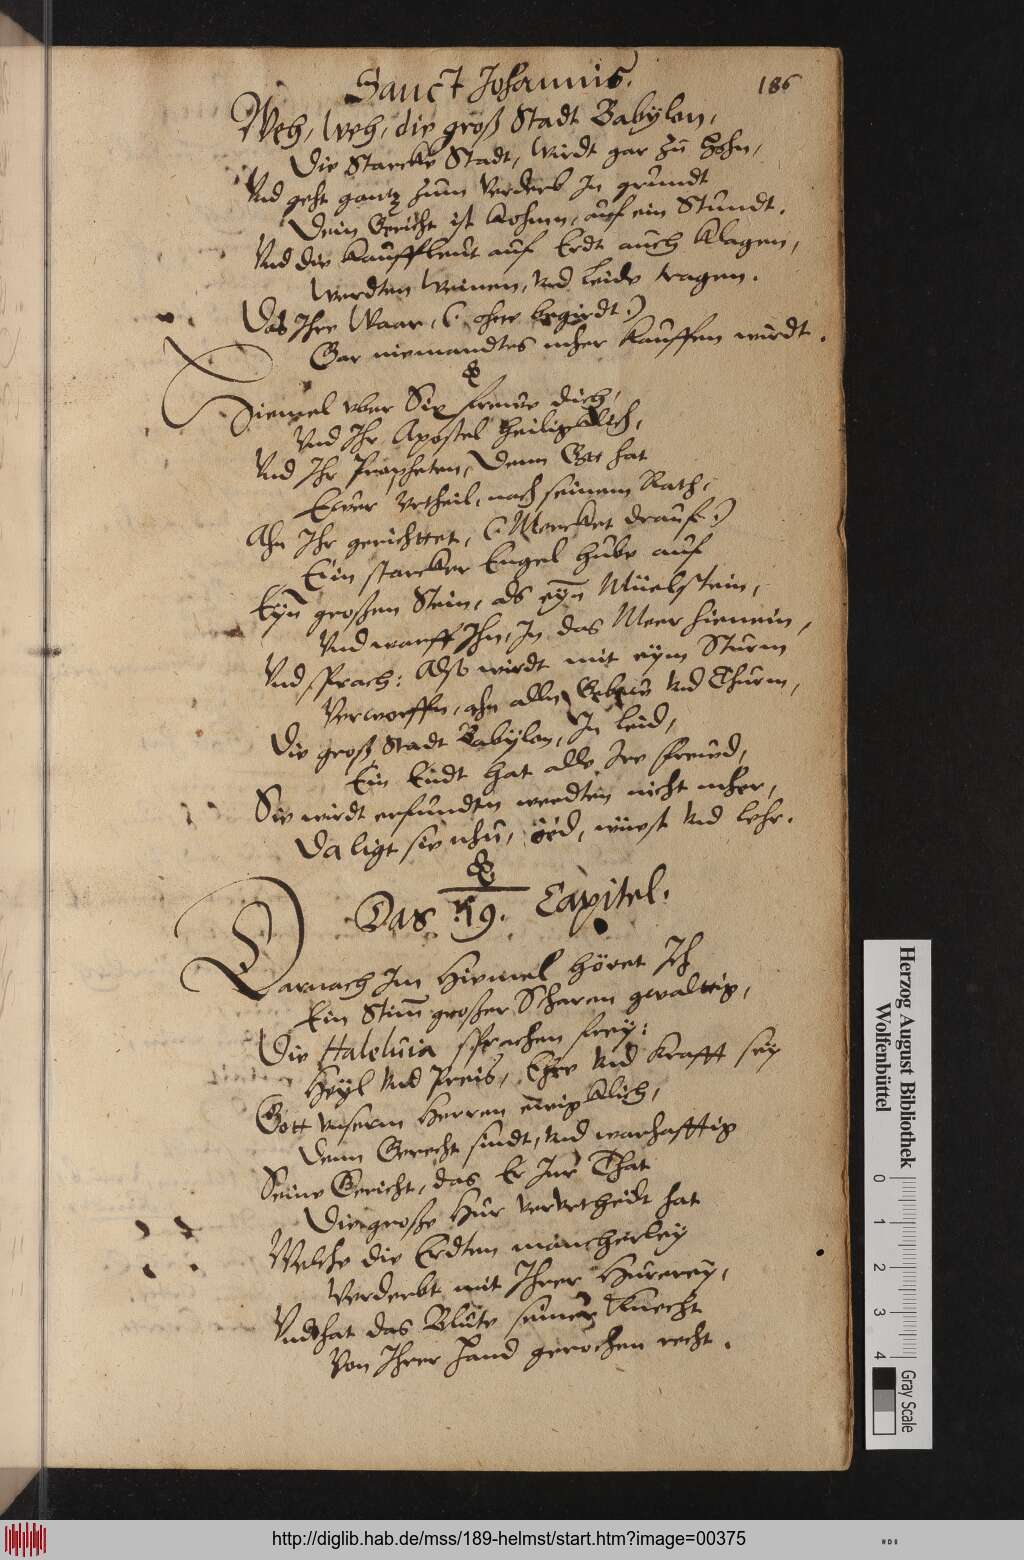 Sanct Johannis.
186
Weh, Weh, die groß Stadt Babylon,
Die Starcke Stadt, Wirdt gar zu Hohn,
Vnd geht gantz zum Verderb In grundt
Dein Gericht ist kohmn, auf ein Stundt.
Vnd die Kauffleut auf Erdt auch Klagen,
Werdten Weinen, Vnd Leide tragen.
Das Ihre Waar, (: ohne begirdt :)
Gar niemandts mher Kauffen wirdt.
Hiemel vber Sie frewe dich,
Vnd Ihr Apostel heiligklich,
Vnd Ihr Propheten, Denn Gott hat
Ewer Vrtheil, nach seinem Rath,
Ahn Ihr gerichttet, (: Mercket drauf :)
Ein starcker Engel hube auf
Eyn großen Stein, als eyn Müelstein,
Vnd warff Ihn, In das Meer hienein,
Vnd sprach: Also wirdt mit eym Sturm
Verworffn, ahn alln Gebew Vnd Thurm,
Die groß Stadt Babylon, In Leid,
Ein Endt hat alle Ire frewd,
Sie wirdt erfundtn werdten nicht mher,
Da ligt sie nhu, öed, wüest Vnd lehr.
Das 19. Capitel.
Darnach Im Hiemel höret Ich
Ein Stim großer Scharen gwaltig,
Die Haleluia sprachen frey:
Heyl Vnd Preis, Ehre Vnd Krafft sey
Gott vnserm Herren ewigklich,
Denn Gerecht sindt, Vnd warhafftig
Seine Gericht, das Er Inn That
Die große Hur Vervrtheilt hat
Welche die Erdten mancherley
Verderbt mit Ihrer Hurerey,
Vnd hat das Blute seiner Knecht
Von Ihrer Hand gerochen recht.
Herzog August Bibliothek
Wolfenbüttel
0 1 2 3 4
Gray Scale
http://diglib.hab.de/mss/189-helmst/start.htm?image=00375